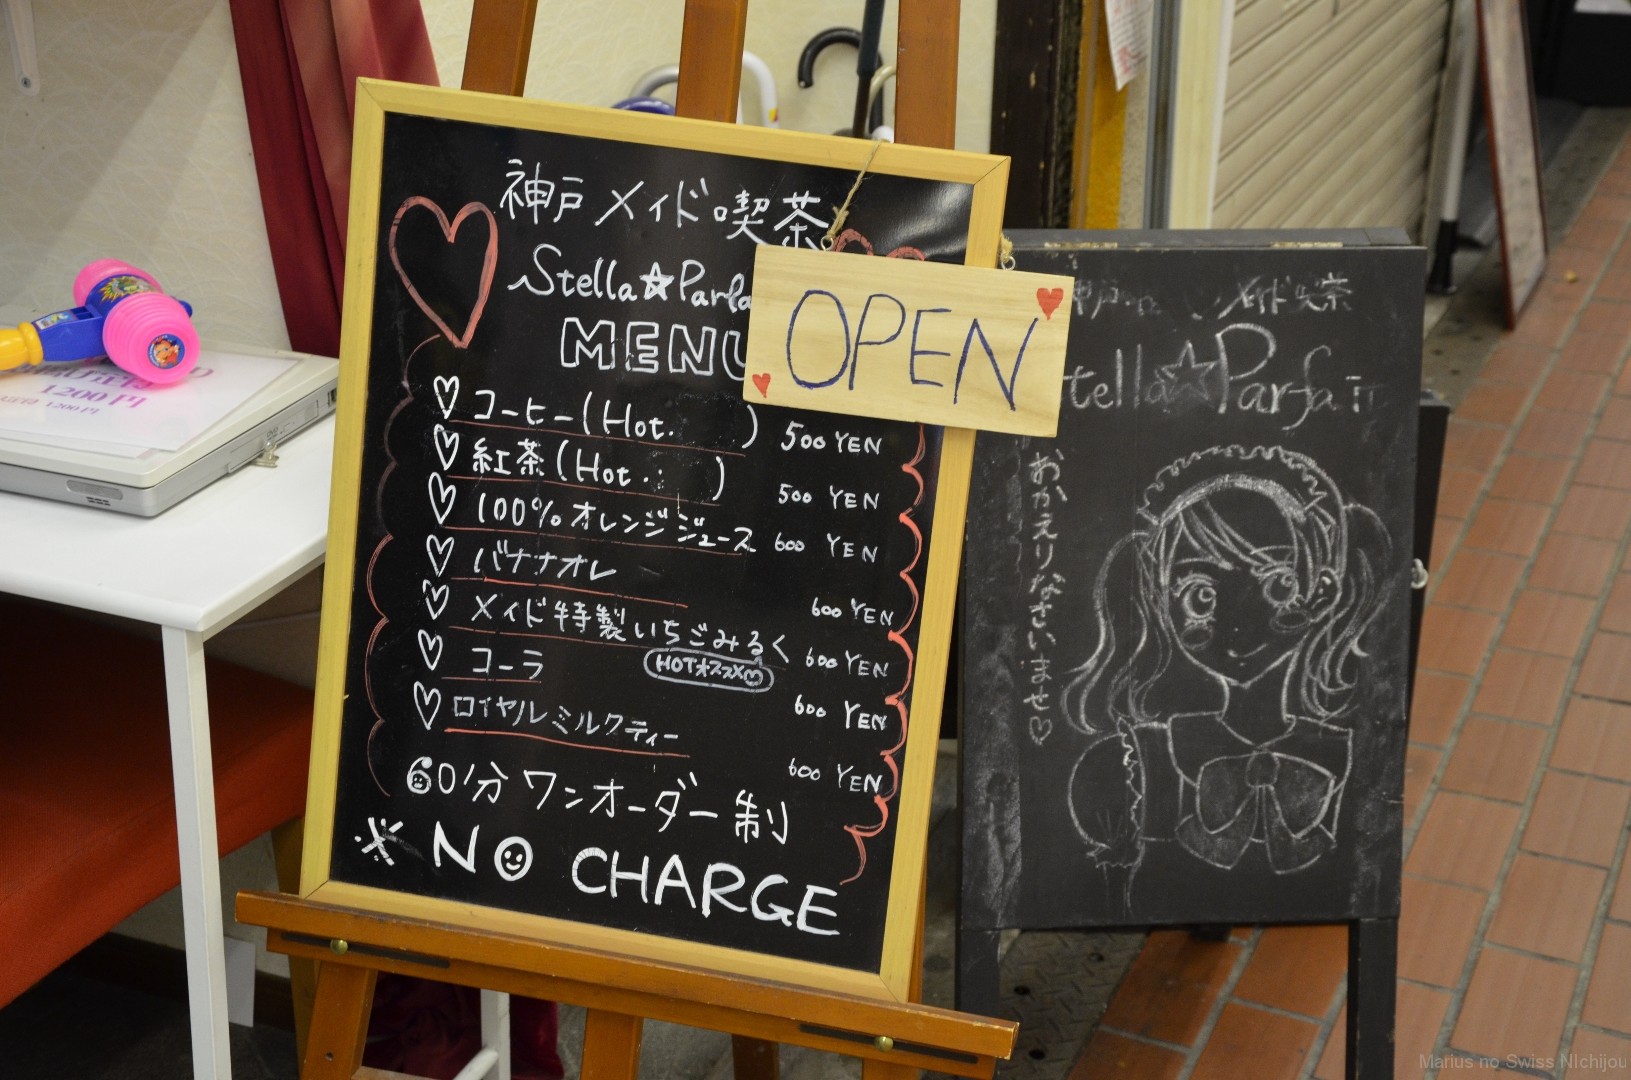 神戸メイド喫茶
Stella☆Parfa
MENU
OPEN
♡コーヒー(Hot. ) 500 YEN
♡紅茶(Hot. ) 500 YEN
♡100%オレンジジュース 600 YEN
♡バナナオレ 600 YEN
♡メイド特製いちごみるく 600 YEN
HOTオススメ♡
♡コーラ 600 YEN
♡ロイヤルミルクティー 600 YEN
60分ワンオーダー制
※NO CHARGE
メイド喫茶
tella☆Parfait
おかえりなさいませ♡
1200円
1200円
Marius no Swiss NIchijou